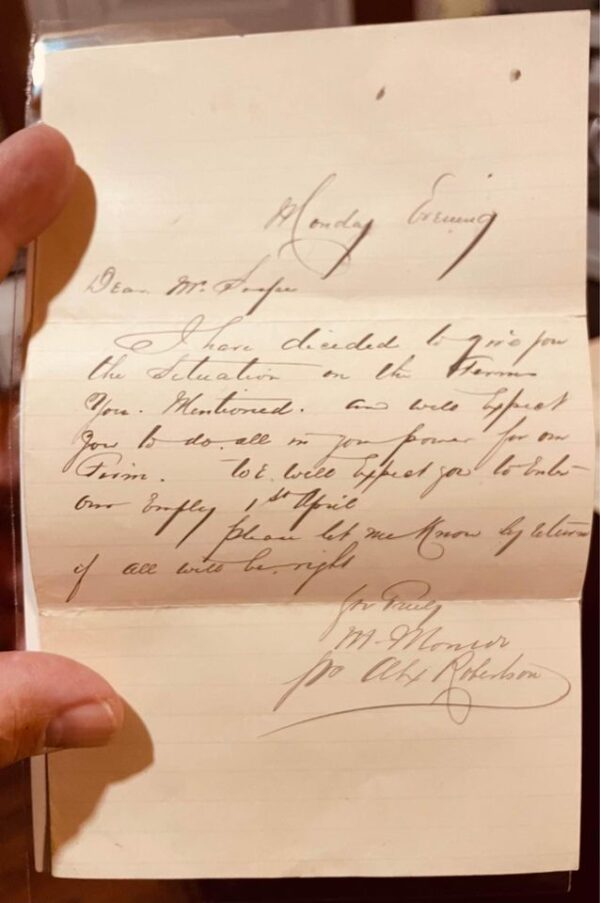 Monday Evening
Dear Mr.
I have decided to give you
the Situation on the Terms
You. Mentioned. and will Expect
you to do all in your power for our
Firm. We will Expect you to Enter
our Employ 1st April
please let me Know by return
if all will be right
M. 
pr Alex Robertson